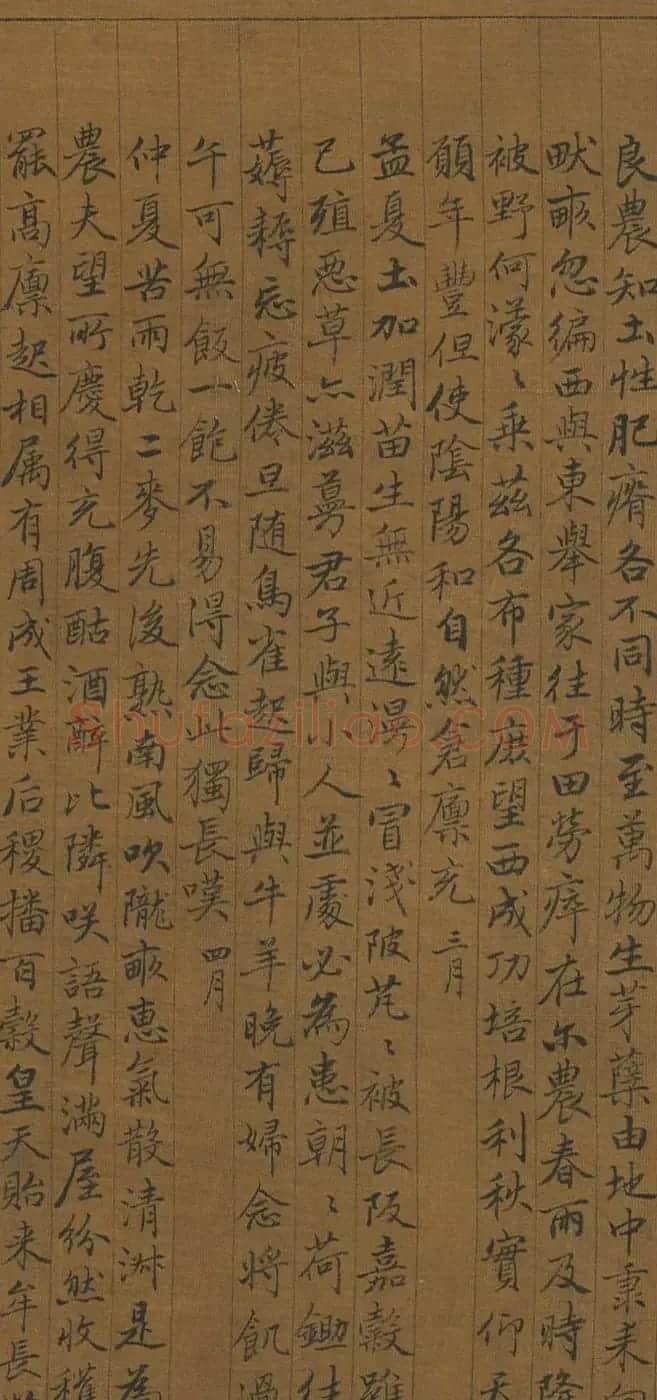 良農知土性肥瘠各不同時至萬物生芽蘖由地中秉耒向
畎畝忽徧西與東舉家往于田勞瘁在尔農春雨及時降
被野何濛〻乘茲各布種庶望西成功培根利秋實仰天
願年豐但使陰陽和自然倉廪充 三月
孟夏土加潤苗生無近遠漫〻冒淺陂芃〻被長阪嘉穀雖
已殖惡草亦滋蔓君子與小人並處必為患朝〻荷鋤往
薅耨忘疲倦旦随鳥雀起歸與牛羊晚有婦念將飢過
午可無飯一飽不易得念此獨長嘆 四月
仲夏苦雨乾二麥先後熟南風吹隴畝惠氣散清淑是為
農夫望所慶得充腹酤酒醉比隣咲語聲滿屋紛然收穫
罷高廪起相属有周成王業后稷播百穀皇天貽来牟長
Shufaziliao.COM